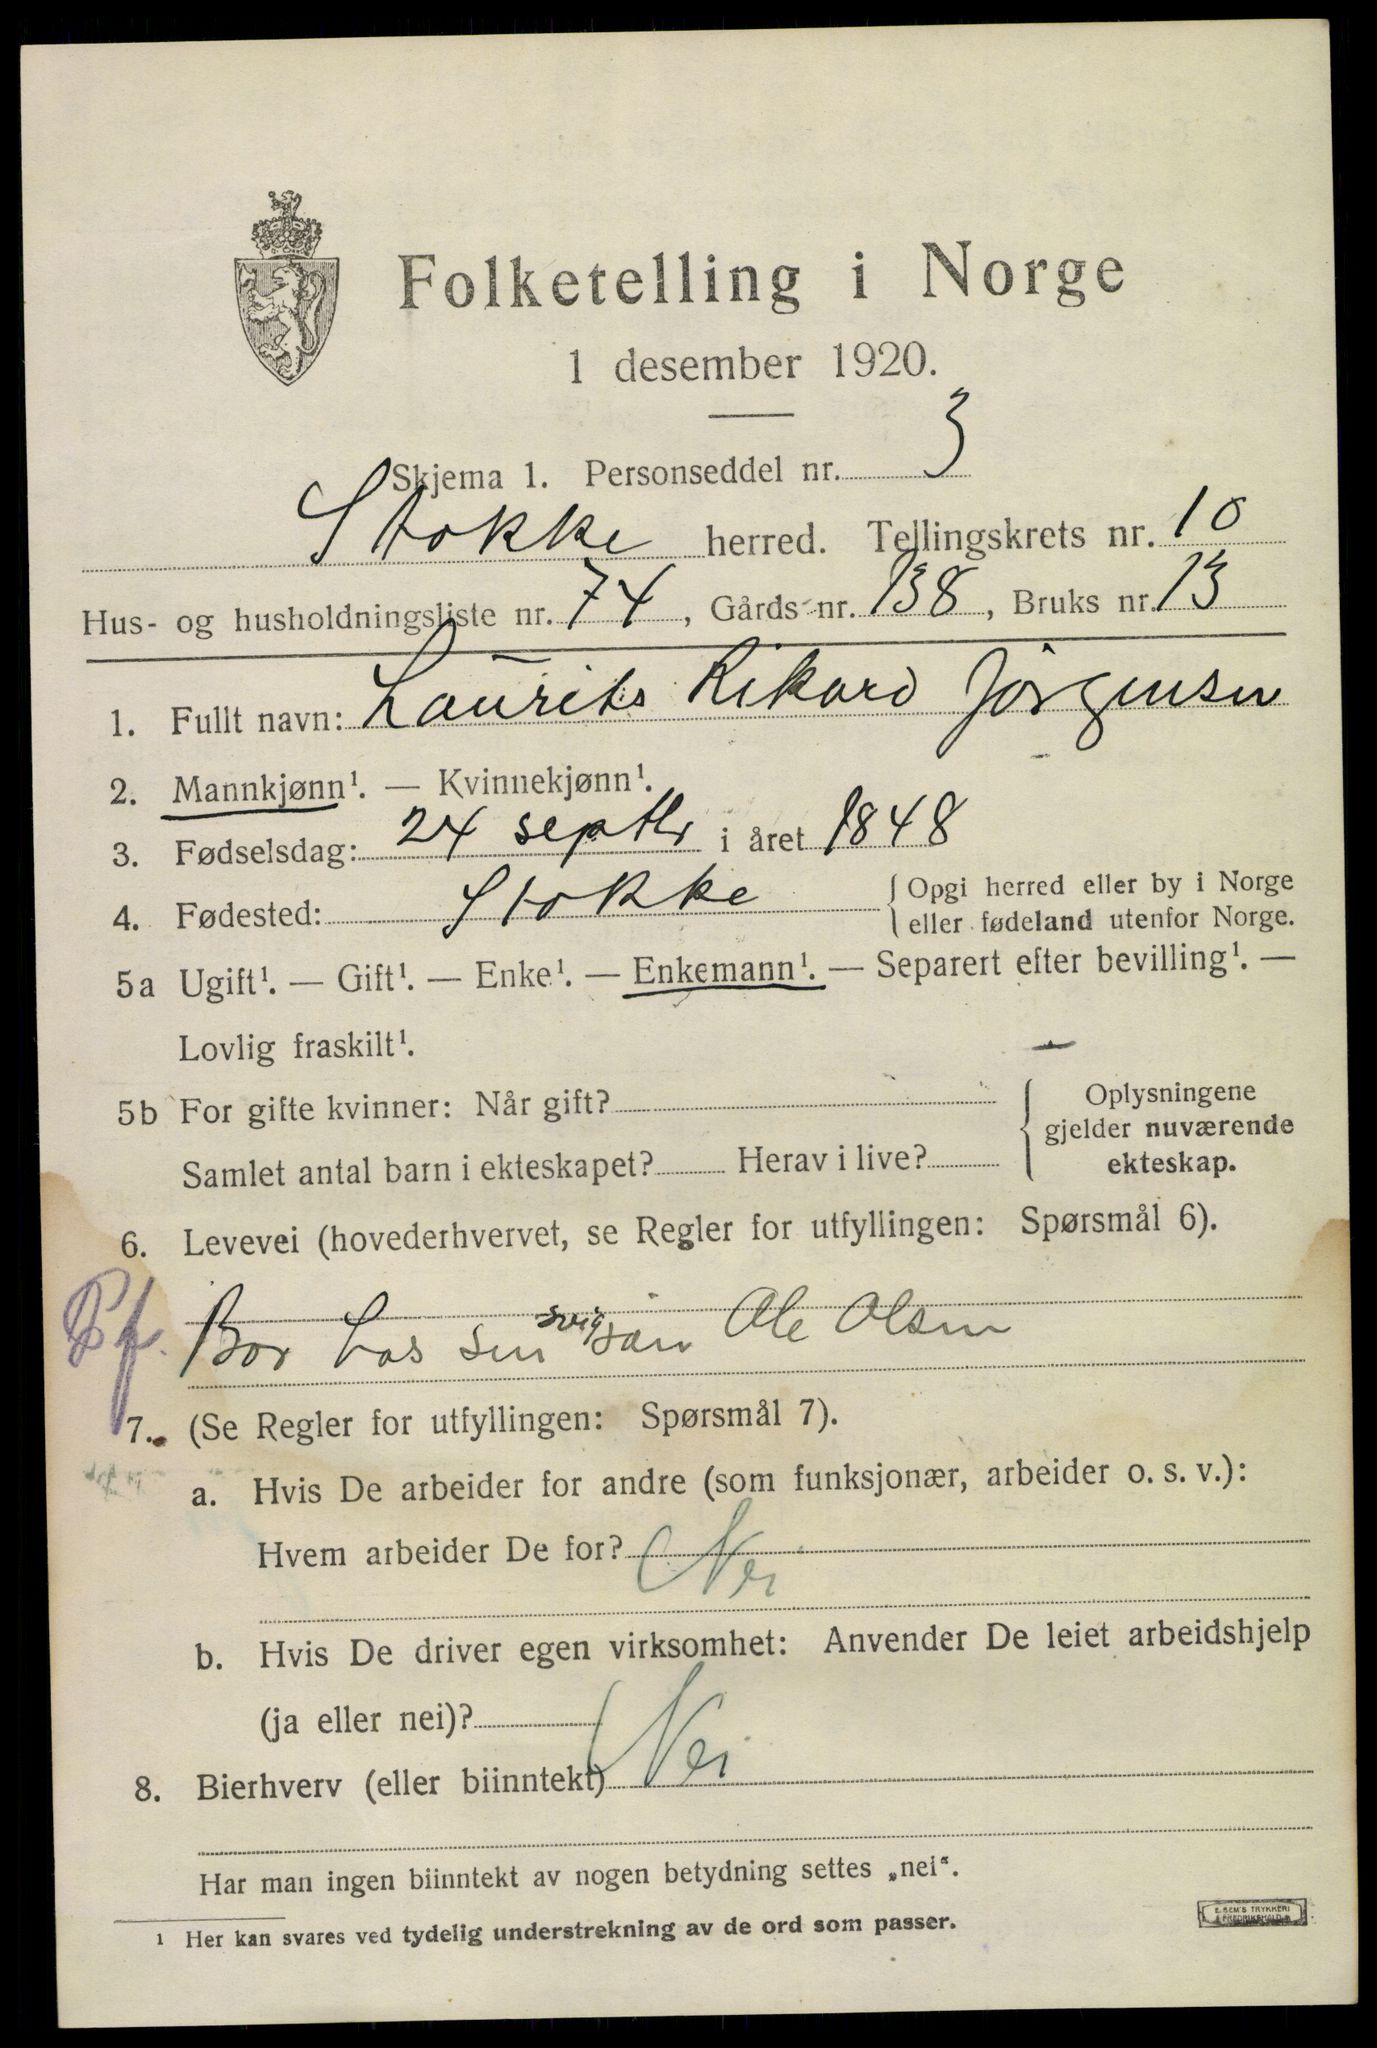 Folketelling i Norge
1 desember 1920.
Skjema 1. Personseddel nr. 3
Stokke herred. Tellingskrets nr. 10
Hus- og husholdningsliste nr. 74, Gårds nr. 138, Bruks nr. 13
1. Fullt navn: Laurits Rikard Jörgensen
2. Mannkjønn¹. — Kvinnekjønn¹.
3. Fødselsdag: 24 septbr i året 1848
4. Fødested: Stokke { Opgi herred eller by i Norge
eller fødeland utenfor Norge.
5a Ugift¹. — Gift¹. — Enke¹. — Enkemann¹. — Separert efter bevilling¹. —
Lovlig fraskilt¹.
5b For gifte kvinner: Når gift?
Samlet antal barn i ekteskapet? Herav i live?
{ Oplysningene
gjelder nuværende
ekteskap.
6. Levevei (hovederhvervet, se Regler for utfyllingen: Spørsmål 6).
Pf.
Bor hos sin svigsøn Ole Olsen
7. (Se Regler for utfyllingen: Spørsmål 7).
a. Hvis De arbeider for andre (som funksjonær, arbeider o. s. v.):
Hvem arbeider De for? Nei
b. Hvis De driver egen virksomhet: Anvender De leiet arbeidshjelp
(ja eller nei)? Nei
8. Bierhverv (eller biinntekt)
Har man ingen biinntekt av nogen betydning settes „nei“.
¹ Her kan svares ved tydelig understrekning av de ord som passer.
E. SEM'S TRYKKERI
FREDRIKSHALD